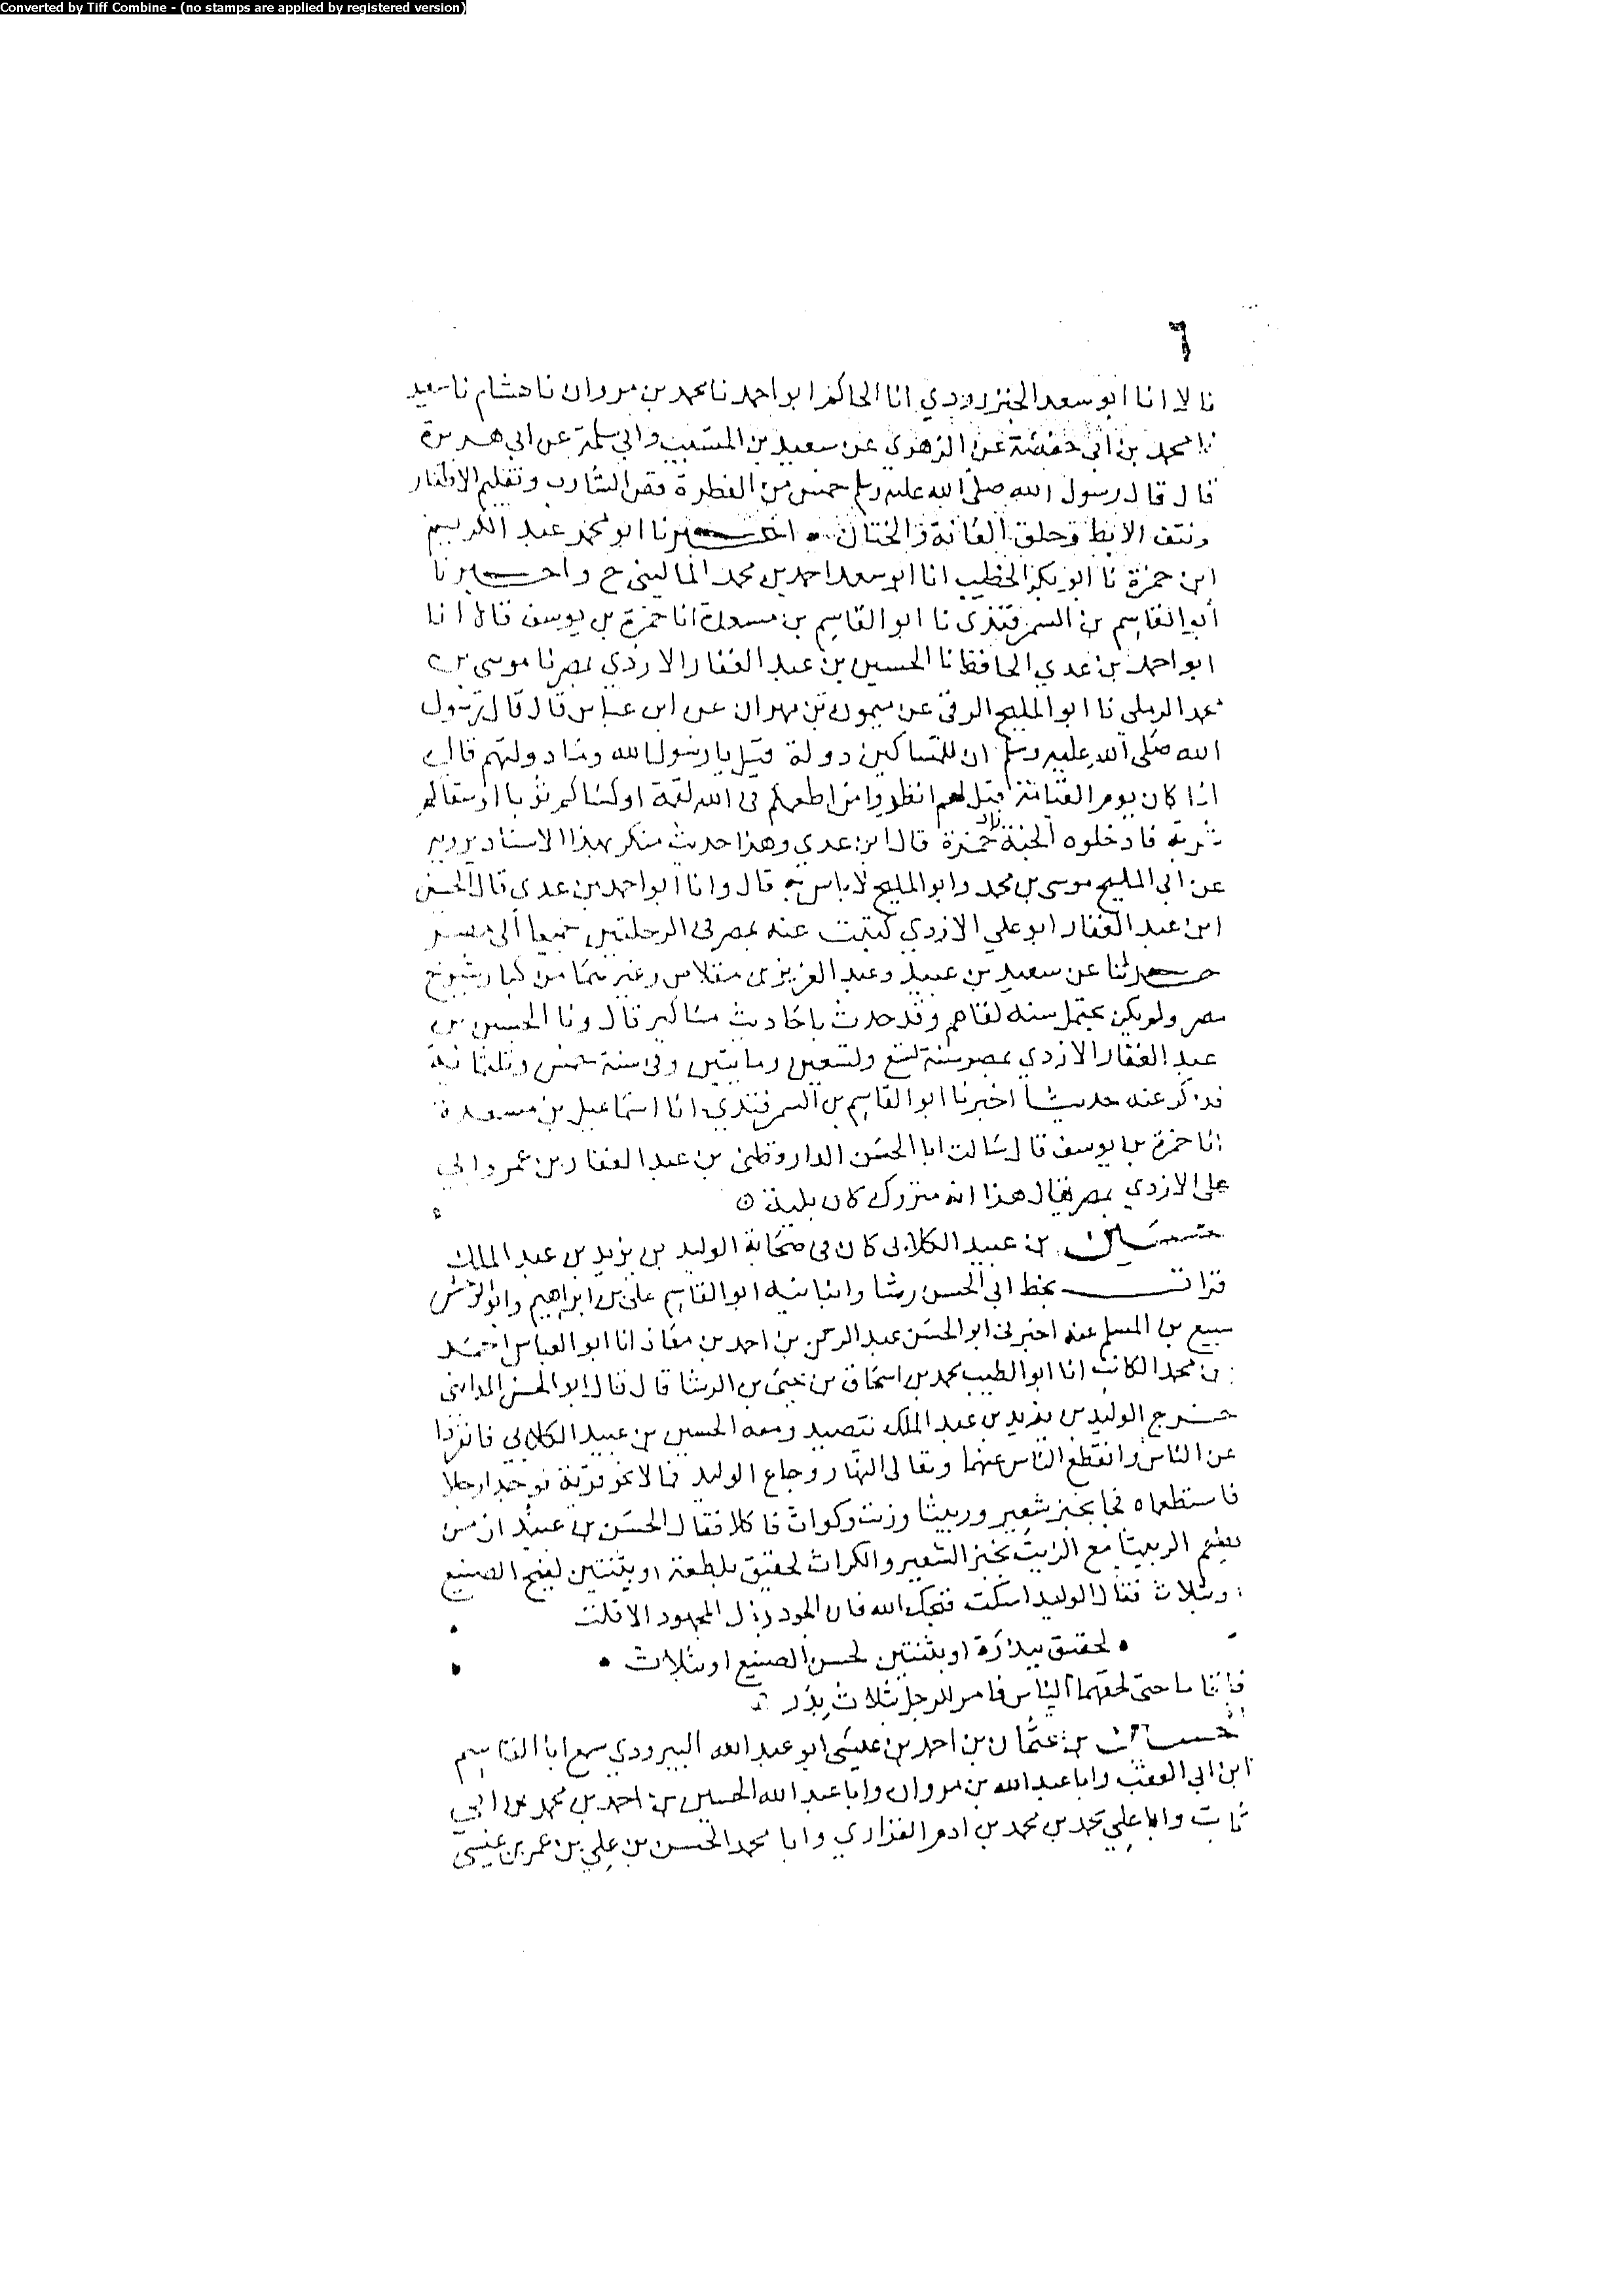 Converted by Tiff Combine - (no stamps are applied by registered version)
٦
قالا انا ابو سعد الجنزرودي انا الحاكم ابو احمد نا محمد بن مروان نا هشام نا سعيد
نا محمد بن ابي حفصة عن الزهري عن سعيد بن المسيب وابي سلمة عن ابي هريرة
قال قال رسول الله صلى الله عليه وسلم خمس من الفطرة قص الشارب وتقليم الاظفار
ونتف الابط وحلق العانة والختان • اخبرنا ابو محمد عبد الكريم
ابن حمزة نا ابو بكر الخطيب انا ابو سعد احمد بن محمد الماليني ح واخبرنا
ابو القاسم بن السمرقندي نا ابو القاسم بن مسعدة انا حمزة بن يوسف قالا انا
ابو احمد بن عدي الحافظ نا الحسين بن عبد الغفار الازدي بمصر نا موسى بن
محمد الرملي نا ابو المليح الرقي عن ميمون بن مهران عن ابن عباس قال قال رسول
الله صلى الله عليه وسلم ان للمساكين دولة قيل يا رسول الله وما دولتهم قال
اذا كان يوم القيامة قيل لهم انظروا من اطعمكم في الله لقمة او كساكم ثوبا او سقاكم
شربة فادخلوه الجنة زاد حمزة قال ابن عدي وهذا حديث منكر بهذا الاسناد يرويه
عن ابي المليح موسى بن محمد وابو المليح لا باس به قال وانا ابو احمد بن عدي قال الحسن
ابن عبد الغفار ابو علي الازدي كتبت عنه بمصر في الرحلتين جميعا الى مصر
حدثنا عن سعيد بن عبيد وعبد العزيز بن مقلاس وغيرهما من كبار شيوخ
مصر ولم يكن يحتمل سنه لقاهم وقد حدث باحاديث مناكير قال ونا الحسين بن
عبد الغفار الازدي بمصر سنة تسع وتسعين ومايتين وفي سنة خمس وثلثماية
فذكر عنه حديثا اخبرنا ابو القاسم بن السمرقندي انا اسماعيل بن مسعدة
انا حمزة بن يوسف قال سالت ابا الحسن الدارقطني بن عبد الغفار بن عمرو ابي
علي الازدي بمصر فقال هذا انه متروك كان بلية ⊙
حسين بن عبيد الكلابي كان في صحابة الوليد بن يزيد بن عبد الملك
قرات بخط ابي الحسن رشا وانبانيه ابو القاسم علي بن ابراهيم وابو الوحش
سبيع بن المسلم عنه اخبرني ابو الحسن عبد الرحمن بن احمد بن معاذ انا ابو العباس احمد
بن محمد الكاتب انا ابو الطيب محمد بن اسحاق بن يحيى بن الوشا قال قال ابو الحسن المدايني
خرج الوليد بن يزيد بن عبد الملك يتصيد ومعه الحسين بن عبيد الكلابي فانفردا
عن الناس وانقطع الناس عنهما وتعالى النهار وجاع الوليد فمالا نحو قرية فوجدا رجلا
فاستطعماه فجا بخبز شعير وربيثا وزيت وكراث فاكلا فقال الحسن بن عبيد ان من
يطعم الربيثا مع الزيت بخبز الشعير والكراث لحقيق بلطمة او بثنتين لقبح الصنيع
او بثلاث فقال الوليد اسكت قبحك الله فان الجود بذل المجهود الا قلت
• لحقيق ببدرة او بثنتين لحسن الصنيع او بثلاث •
فاقاما حتى لحقهما الناس فامر للرجل بثلاث بدر
حسين بن عثمان بن احمد بن عيسى ابو عبد الله اليبرودي سمع ابا القاسم
ابن ابي العقب وابا عبد الله بن مروان وابا عبد الله الحسين بن احمد بن محمد بن ابي
ثابت وابا علي محمد بن محمد بن ادم الفزاري وابا محمد الحسن بن علي بن عمر بن عيسى